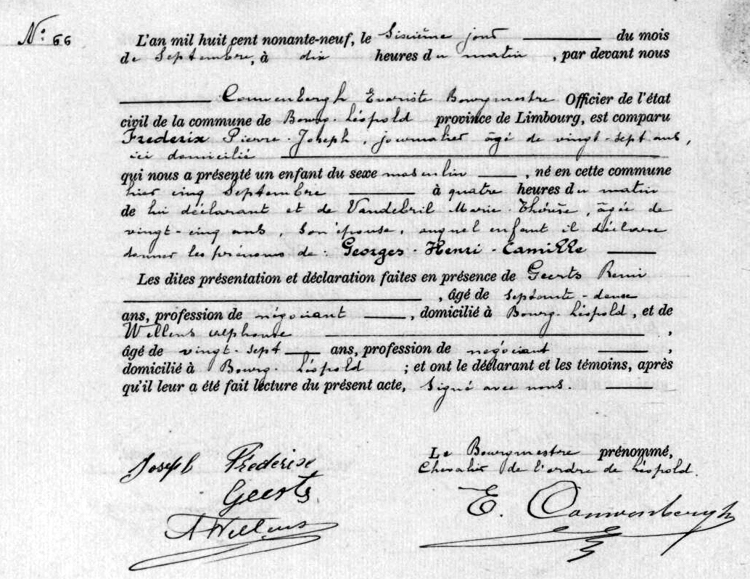 N° 66
L'an mil huit cent nonante-neuf, le Sixième jour du mois
de Septembre, à dix heures du matin, par devant nous
Couwenbergh Evariste Bourgmestre Officier de l'état
civil de la commune de Bourg-Léopold province de Limbourg, est comparu
Frederix Pierre Joseph, journalier âgé de vingt-sept ans,
ici domicilié
qui nous a présenté un enfant du sexe masculin, né en cette commune
hier cinq Septembre à quatre heures du matin
de lui déclarant et de Vandebril Marie-Thérèse, âgée de
vingt-cinq ans, son épouse, auquel enfant il déclare
donner les prénoms de: Georges-Henri-Camille
Les dites présentation et déclaration faites en présence de Geerts Remi
, âgé de septante-deux
ans, profession de négociant, domicilié à Bourg-Léopold, et de
Willems Alphonse ,
âgé de vingt-sept ans, profession de négociant ,
domicilié à Bourg-Léopold ; et ont le déclarant et les témoins, après
qu'il leur a été fait lecture du présent acte, signé avec nous.
Joseph Frederix
Geerts
A Willems
Le Bourgmestre prénommé,
Chevalier de l'ordre de Léopold.
E. Couwenbergh